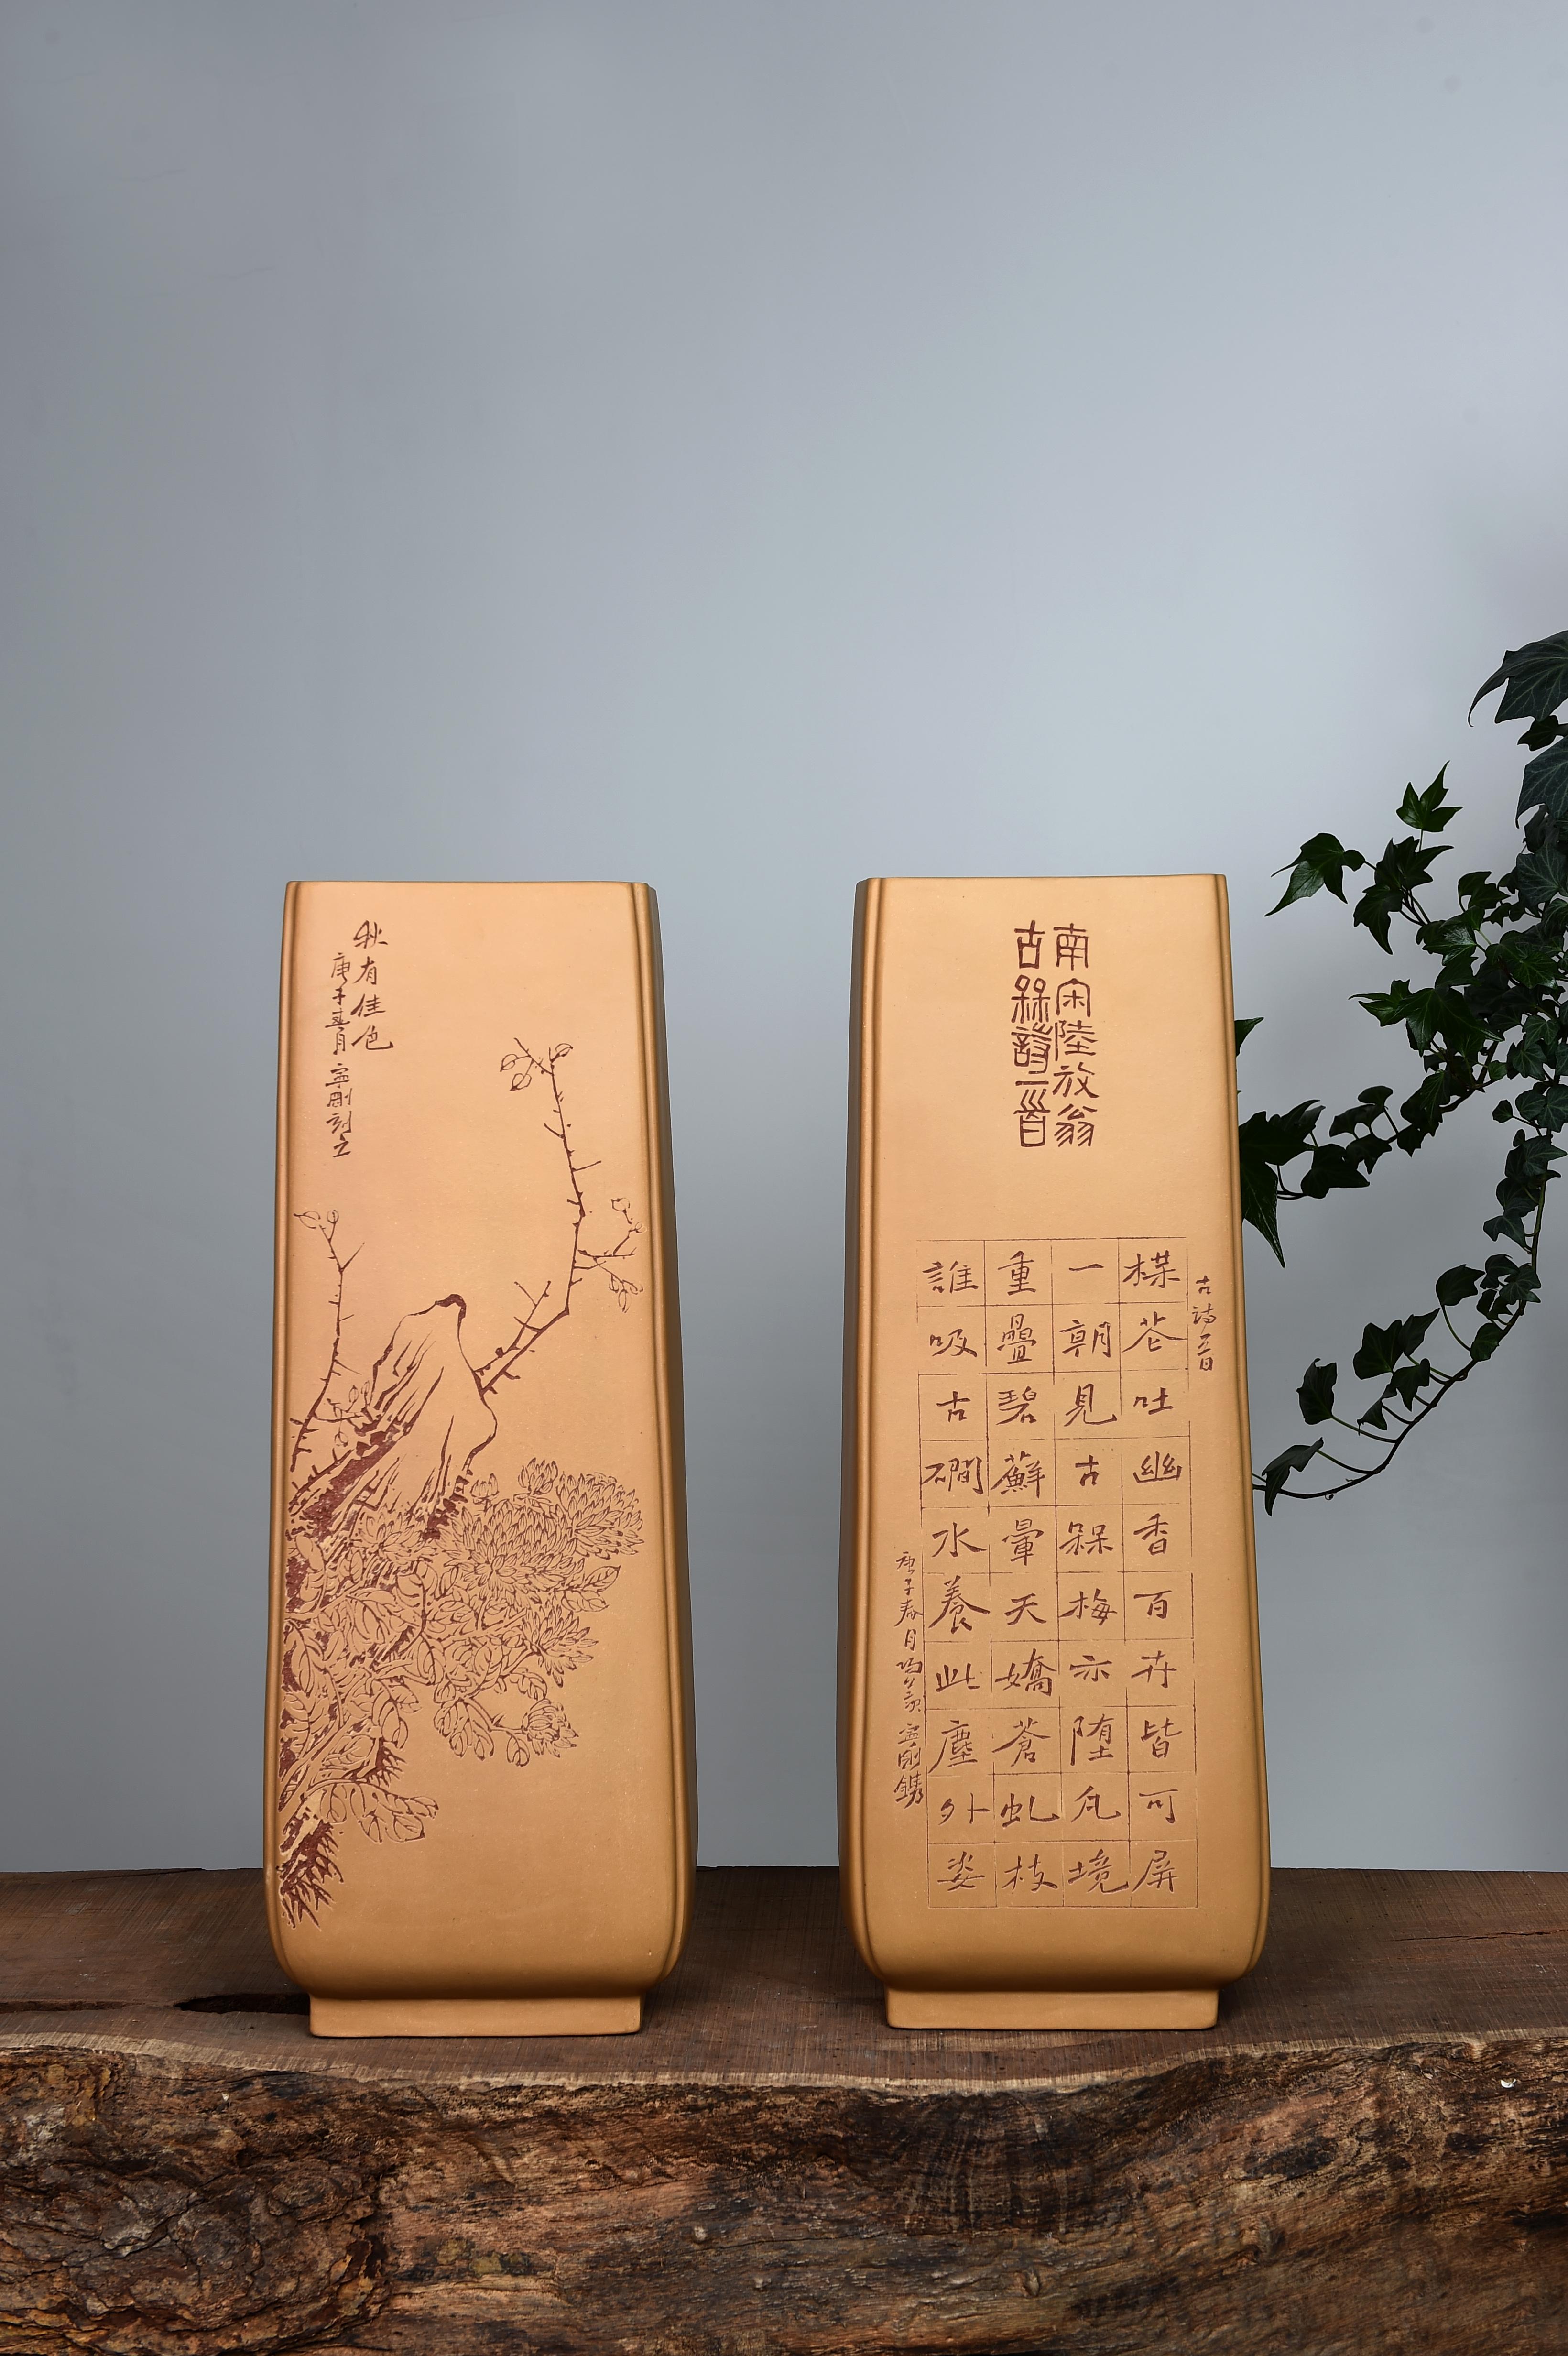 秋有佳色
庚子春月 寍剛刻之
南宋陸放翁
古槑詩一首
古詩一首
楳花吐幽香百卉皆可屏
一朝見古槑梅亦堕凢境
重疊碧蘚暈天嬌蒼虬枝
誰吸古磵水養此塵外姿
庚子春月 寍剛鐫